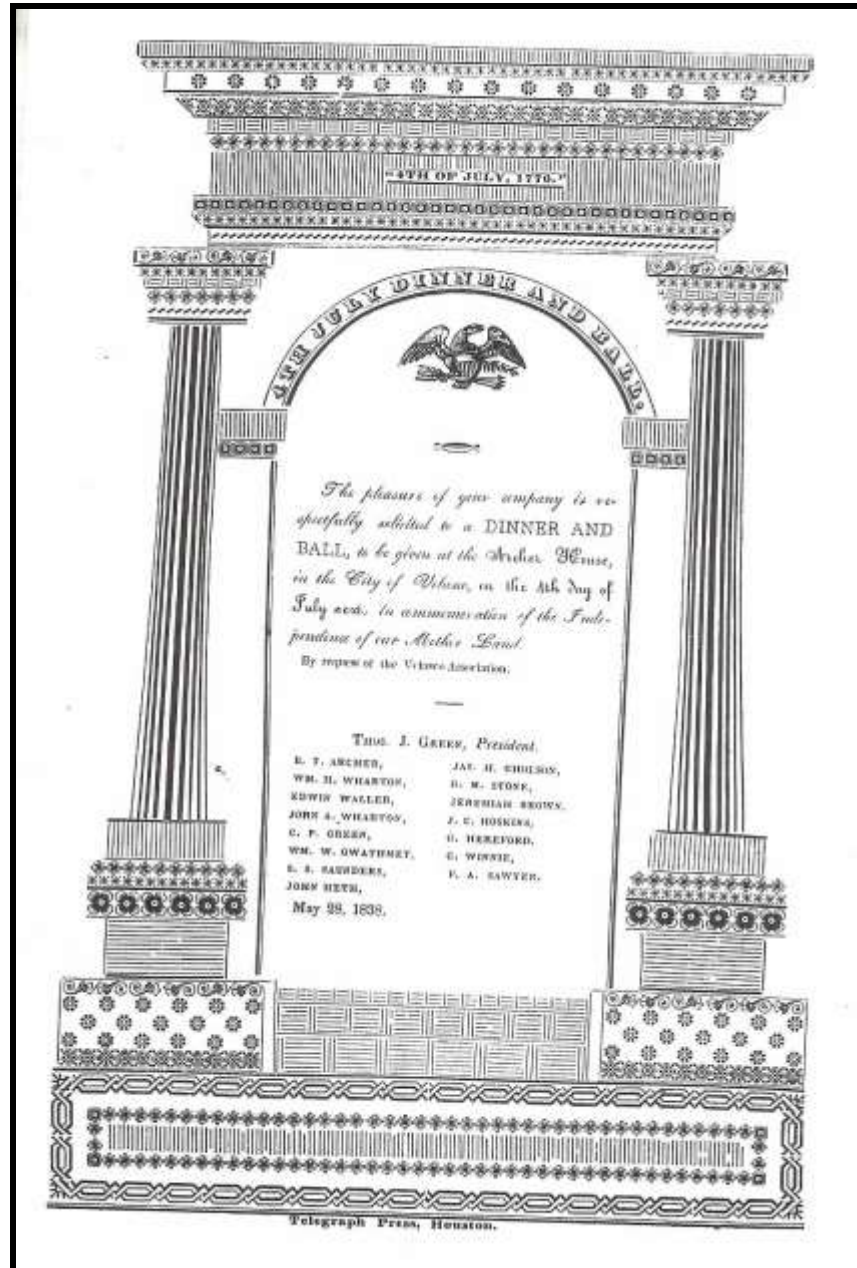 "4TH OF JULY, 1776."
4TH JULY DINNER AND BALL.
The pleasure of your company is re-
spectfully solicited to a DINNER AND
BALL, to be given at the Archer House,
in the City of Velasco, on the 4th day of
July next. In commemoration of the Inde-
pendence of our Mother Land.
By request of the Velasco Association.
Thos. J. Green, President.
B. T. ARCHER,
WM. H. WHARTON,
EDWIN WALLER,
JOHN A. WHARTON,
C. P. GREEN,
WM. W. GWATHMEY,
S. S. SAUNDERS,
JOHN HETH,
JAS. H. GHOLSON,
H. M. STONE,
JEREMIAH BROWN,
J. C. HOSKINS,
HEREFORD,
G. WINNIE,
F. A. SAWYER.
May 28, 1838.
Telegraph Press, Houston.